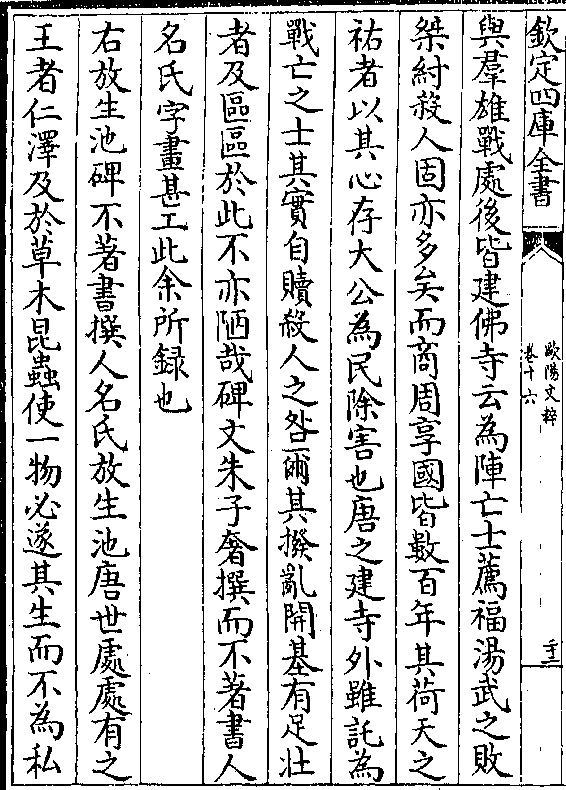 欽定四庫全書
歐陽文粹
卷十六
與羣雄戰處後皆建佛寺云為陣亡士薦福湯武之敗
桀紂殺人固亦多矣而商周享國皆數百年其荷天之
祐者以其心存大公為民除害也唐之建寺外雖託為
戰亡之士其實自贖殺人之咎爾其撥亂開基有足壯
者及區區於此不亦陋哉碑文朱子奢撰而不著書人
名氏字畫甚工此余所録也
右放生池碑不著書撰人名氏放生池唐世處處有之
王者仁澤及於草木昆蟲使一物必遂其生而不為私